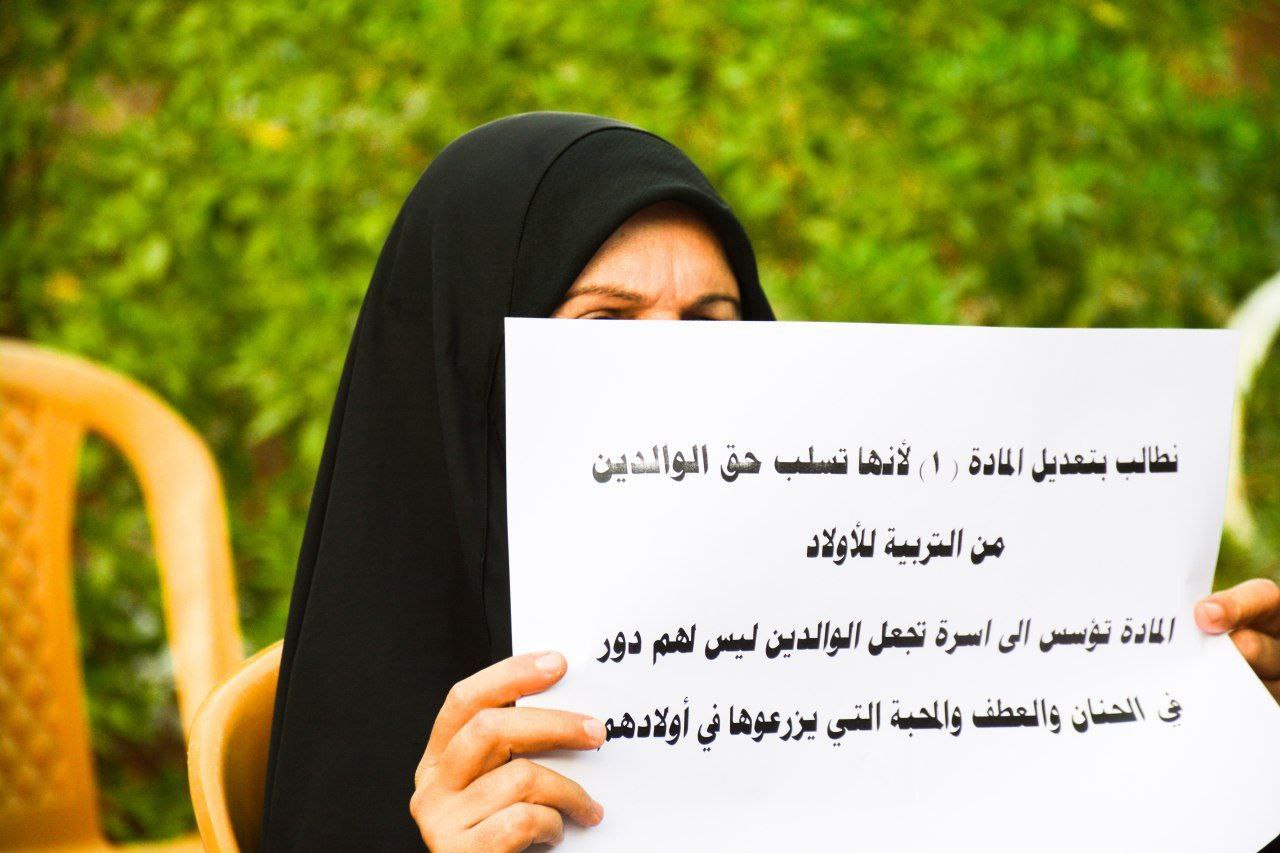 نطالب بتعديل المادة (١) لأنها تسلب حق الوالدين
من التربية للأولاد
المادة تؤسس الى اسرة تجعل الوالدين ليس لهم دور
في الحنان والعطف والمحبة التي يزرعوها في أولادهم